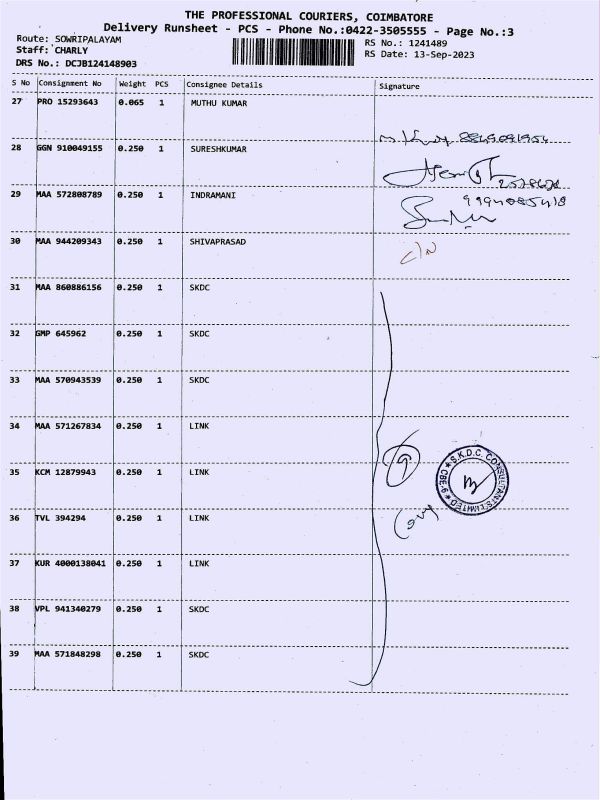 THE PROFESSIONAL COURIERS, COIMBATORE
Delivery Runsheet - PCS - Phone No.:0422-3505555 - Page No.:3
Route: SOWRIPALAYAM
Staff: CHARLY
DRS No.: DCJB124148903
RS No.: 1241489
RS Date: 13-Sep-2023
S No Consignment No Weight PCS Consignee Details Signature
27 PRO 15293643 0.065 1 MUTHU KUMAR
28 GGN 910049155 0.250 1 SURESHKUMAR
29 MAA 572808789 0.250 1 INDRAMANI
9994085418
30 MAA 944209343 0.250 1 SHIVAPRASAD
C/N
31 MAA 860886156 0.250 1 SKDC
32 GMP 645962 0.250 1 SKDC
33 MAA 570943539 0.250 1 SKDC
34 MAA 571267834 0.250 1 LINK
35 KCM 12879943 0.250 1 LINK
9
S.K.D.C. CONSULTANTS LIMITED ★ CBE-6 ★
36 TVL 394294 0.250 1 LINK
37 KUR 4000138041 0.250 1 LINK
38 VPL 941340279 0.250 1 SKDC
39 MAA 571848298 0.250 1 SKDC